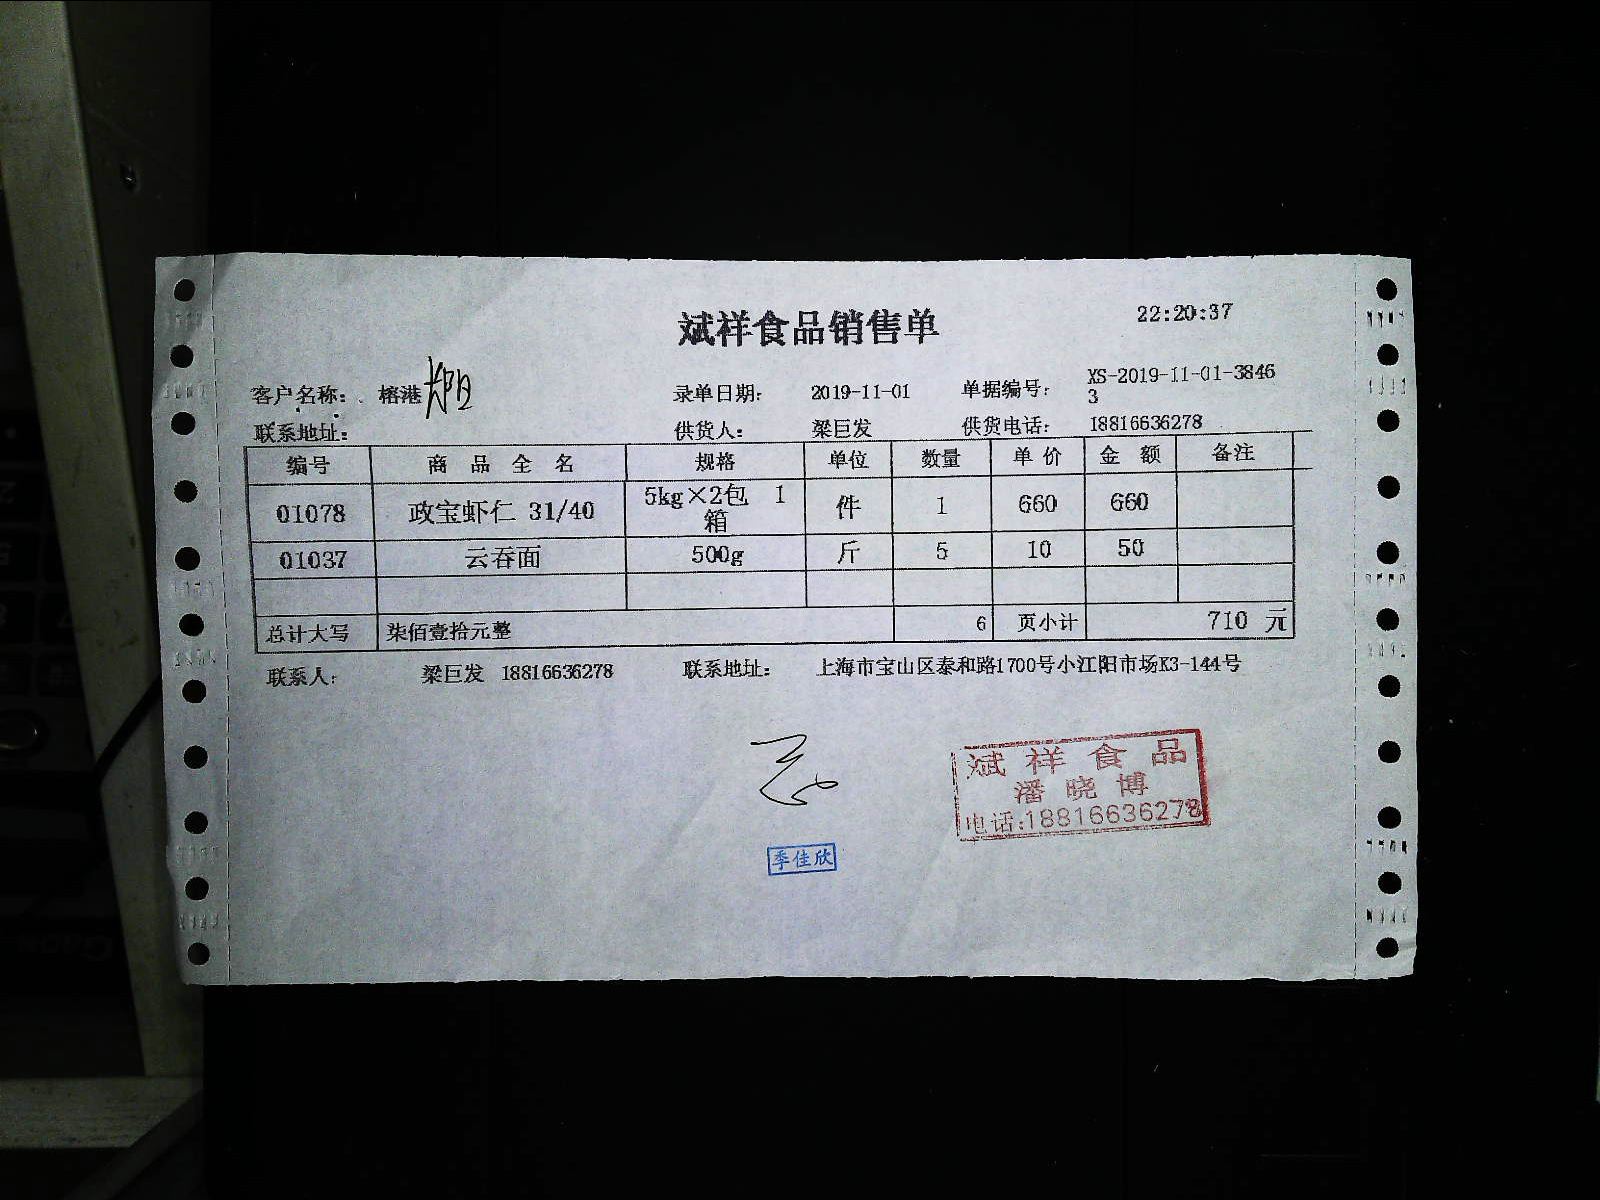 22:20:37
斌祥食品销售单
客户名称: 榕港 录单日期: 2019-11-01 单据编号: XS-2019-11-01-3846
3
联系地址: 供货人: 梁巨发 供货电话: 18816636278
编号 商品全名 规格 单位 数量 单价 金额 备注
01078 政宝虾仁 31/40 5kg×2包 1 件 1 660 660
箱
01037 云吞面 500g 斤 5 10 50
总计大写 柒佰壹拾元整 6 页小计 710 元
联系人: 梁巨发 18816636278 联系地址: 上海市宝山区泰和路1700号小江阳市场K3-144号
斌祥食品
潘晓博
电话:18816636278
季佳欣